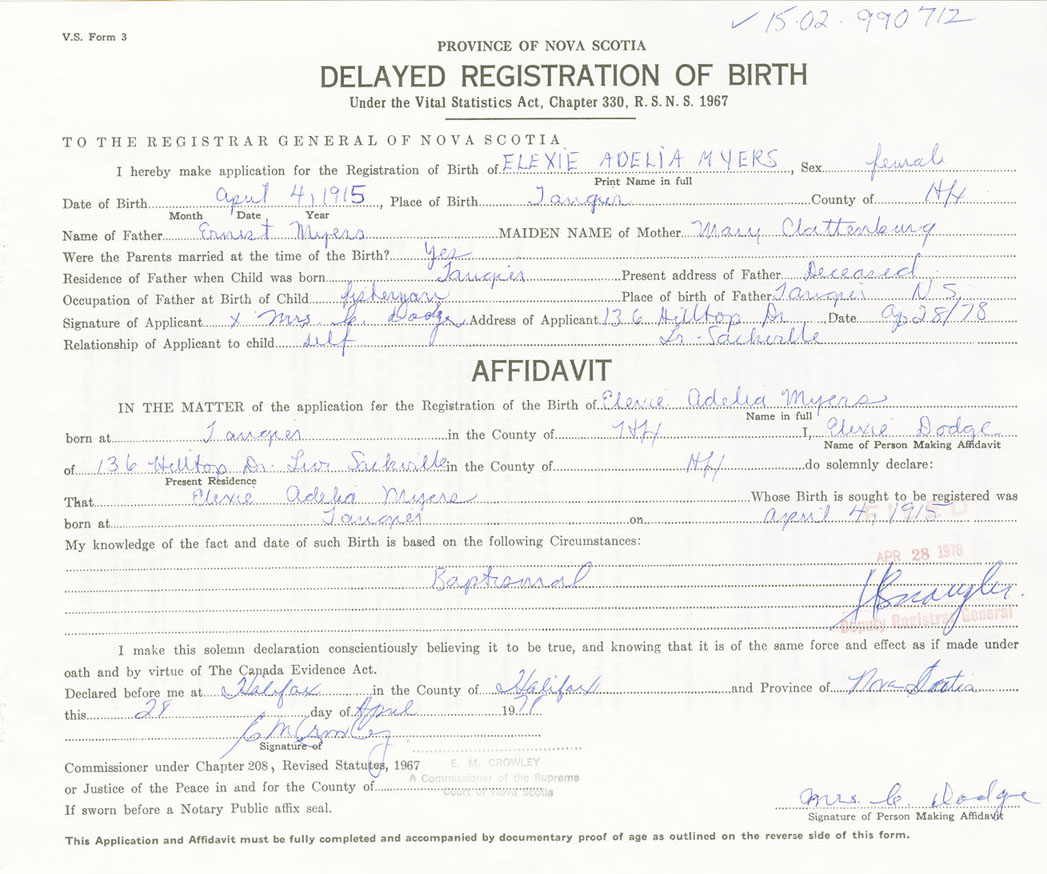 ✓ 15·02·990712
V.S. Form 3
PROVINCE OF NOVA SCOTIA
DELAYED REGISTRATION OF BIRTH
Under the Vital Statistics Act, Chapter 330, R. S. N. S. 1967
TO THE REGISTRAR GENERAL OF NOVA SCOTIA
I hereby make application for the Registration of Birth of ELEXIE ADELIA MYERS, Sex female
Print Name in full
Date of Birth April 4, 1915, Place of Birth Tangier County of Hfx
Month Date Year
Name of Father Ernest Myers MAIDEN NAME of Mother Mary Clattenburg
Were the Parents married at the time of the Birth? Yes
Residence of Father when Child was born Tangier Present address of Father Deceased
Occupation of Father at Birth of Child fisherman Place of birth of Father Tangier N S,
Signature of Applicant x Mrs. C. Dodge Address of Applicant 136 Hilltop Dr Date Ap 28/78
Relationship of Applicant to child self Lr. Sackville
AFFIDAVIT
IN THE MATTER of the application for the Registration of the Birth of Elexie Adelia Myers
Name in full
born at Tangier in the County of Hfx I, Elexie Dodge
Name of Person Making Affidavit
of 136 Hilltop Dr. Lwr Sackville in the County of Hfx do solemnly declare:
Present Residence
That Elexie Adelia Myers Whose Birth is sought to be registered was
born at Tangier on April 4, 1915
FILED
My knowledge of the fact and date of such Birth is based on the following Circumstances:
APR 28 1978
Baptismal
Deputy Registrar General
I make this solemn declaration conscientiously believing it to be true, and knowing that it is of the same force and effect as if made under
oath and by virtue of The Canada Evidence Act.
Declared before me at Halifax in the County of Halifax and Province of Nova Scotia
this 28 day of April 1978
Signature of
Commissioner under Chapter 208, Revised Statutes, 1967
E. M. CROWLEY
A Commissioner of the Supreme
Court of Nova Scotia
or Justice of the Peace in and for the County of
If sworn before a Notary Public affix seal.
Mrs. C. Dodge
Signature of Person Making Affidavit
This Application and Affidavit must be fully completed and accompanied by documentary proof of age as outlined on the reverse side of this form.